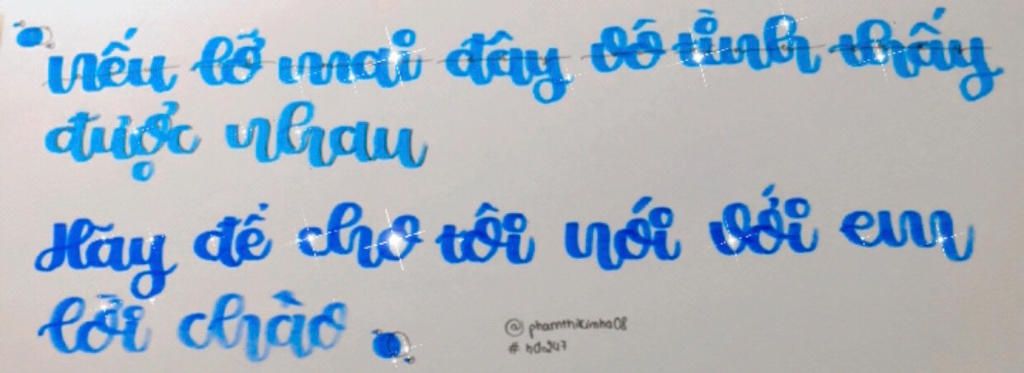 Nếu lỡ mai đây vô tình thấy
được nhau
Hãy để cho tôi nói với em
lời chào
@phamthikimha08
# hdn247